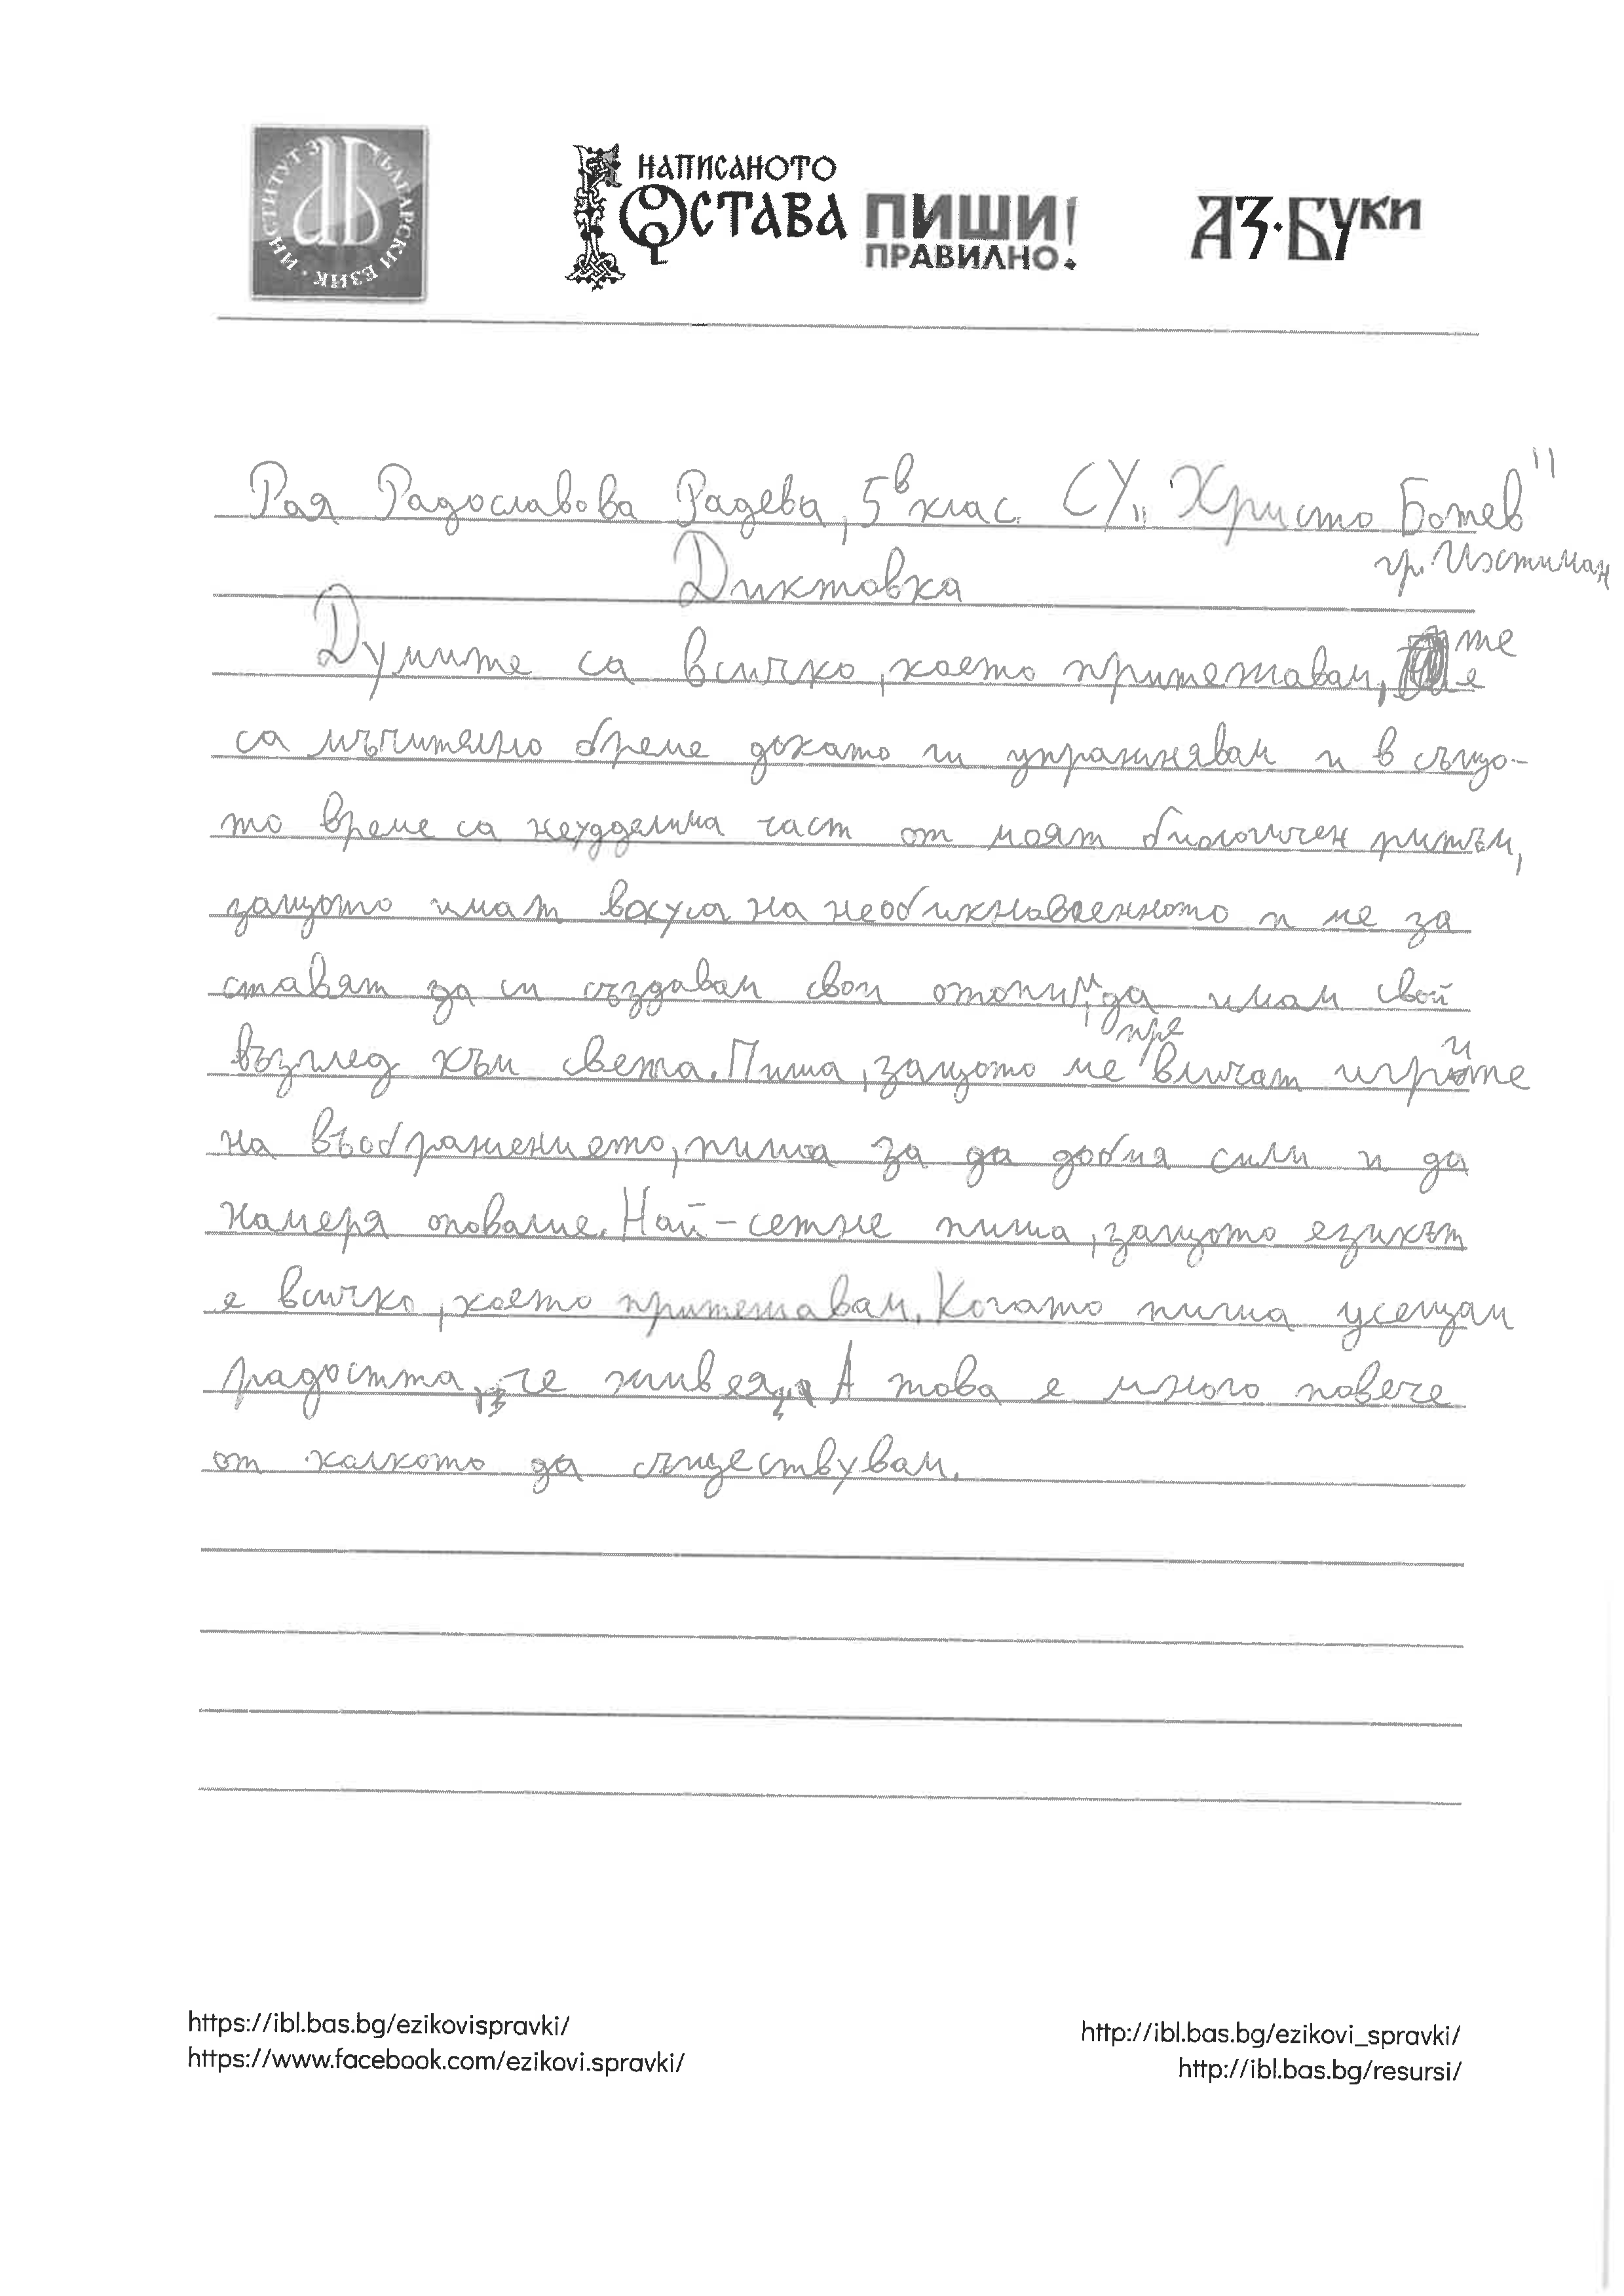 ИНСТИТУТ ЗА БЪЛГАРСКИ ЕЗИК
НАПИСАНОТО
ОСТАВА
ПИШИ!
ПРАВИЛНО.
АЗ·БУКИ
Рая Радославова Радева, 5в клас. СУ „Христо Ботев"
гр. Ихтиман
Диктовка
Думите са всичко, което притежавам, те
са мъчително бреме докато ги упражнявам и в също-
то време са неудделима част от моят биологичен ритъм,
защото имат вкуса на необикновеенното и ме за
ставят да си създавам свои отопии, да имам свой
възглед към света. Пиша, защото ме превличат игрите
на въображението, пиша за да добия сили и да
намеря оповаше. Най-сетне пиша, защото езикът
е всичко, което притежавам. Когато пиша усещам
радостта, че живея. А това е много повече
от колкото да съществувам.
https://ibl.bas.bg/ezikovispravki/
https://www.facebook.com/ezikovi.spravki/
http://ibl.bas.bg/ezikovi_spravki/
http://ibl.bas.bg/resursi/